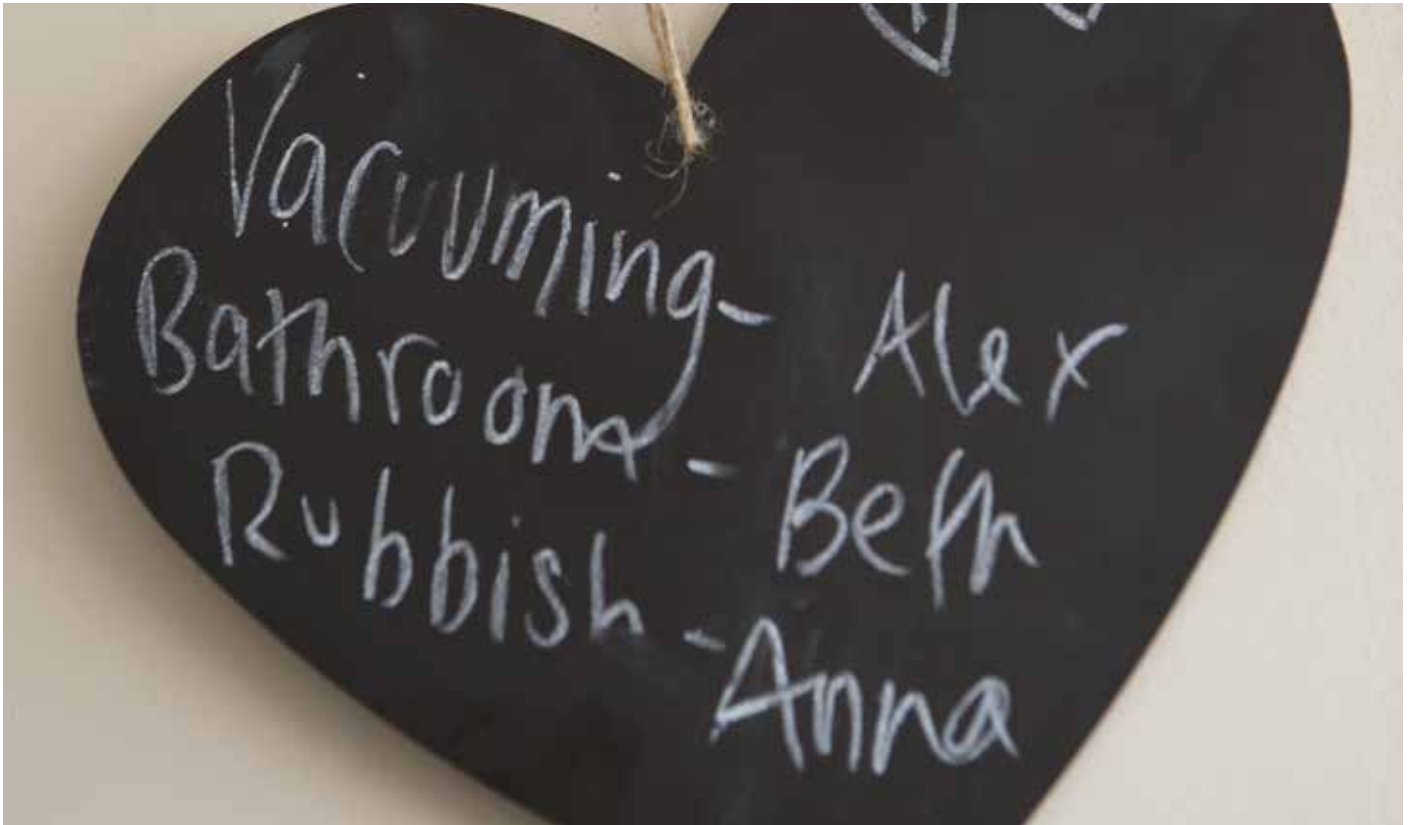 Vacuuming- Alex
Bathroom - Beth
Rubbish - Anna